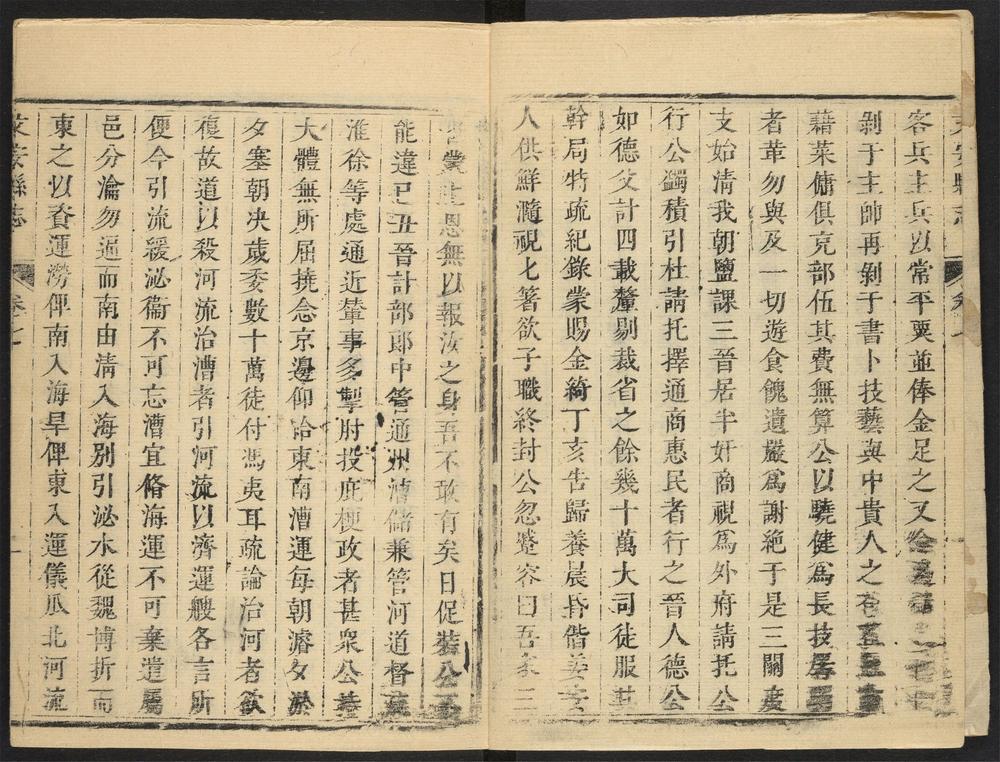 客兵主兵以常平粟並俸金足之又
剝于主帥再剝于書卜技藝與中貴人之
藉菜傭俱克部伍其費無算公以驍健爲長技
者革勿與及一切遊食餽遺嚴爲謝絶于是三關度
支始淸我朝鹽課三晉居半奸商視爲外府請托公
行公蠲積引杜請托擇通商惠民者行之晉人德公
如德父計四載釐剔裁省之餘幾十萬大司徒服其
幹局特疏紀錄蒙賜金綺丁亥告歸養晨昏偕
人供鮮瀡視匕箸欲子職終封公忽蹙容曰吾
恩無以報汝之身吾不敢有矣日促裝公
能違已丑晉計部郎中管通州漕儲兼管河道督
淮徐等處通近輦事多掣肘投庇梗政者甚衆公
大體無所屈撓念京邊仰哈東南漕運每朝濬夕淤
夕塞朝决歲委數十萬徒付馮夷耳疏論治河者欲
復故道以殺河流治漕者引河流以濟運艘各言所
便今引流緩泌衞不可忘漕宜脩海運不可棄遣屬
邑分瀹勿逼而南由淸入海別引泌水從魏博折而
東之以資運澇俾南入海旱俾東入運儀瓜北河流
萊蕪縣志
卷七